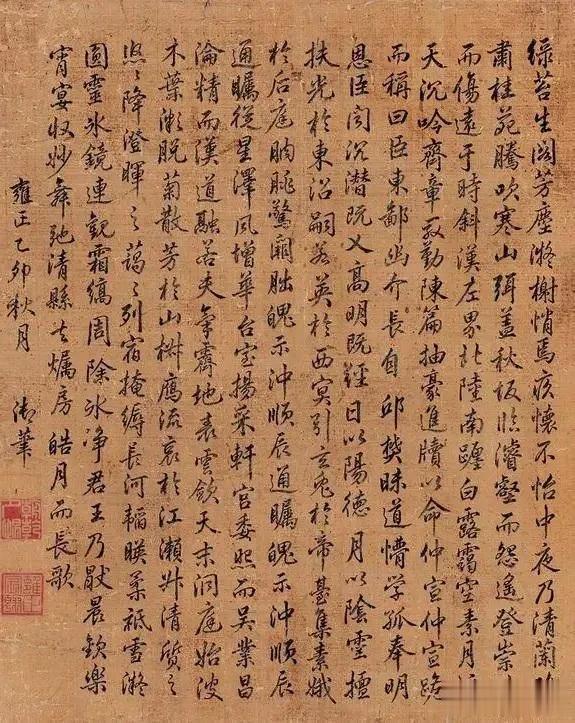 綠苔生閣芳塵凝榭悄焉疚懷不怡中夜乃清蘭
肅桂苑騰吹寒山弭蓋秋坂臨濬壑而怨遙登崇
而傷遠于時斜漢左界北陸南躔白露靄空素月
天沉吟齊章殷勤陳篇抽豪進牘以命仲宣仲宣跪
而稱曰臣東鄙幽介長自邱樊昧道懵學孤奉明
恩臣聞沉潛既乂高明既經日以陽德月以陰靈擅
扶光於東沼嗣若英於西冥引玄兔於帝臺集素娥
於后庭朒朓驚闕朏魄示沖順辰通矚魄示沖順辰
通矚從星澤風增華台室揚采軒宮委照而吳業昌
淪精而漢道融若夫氣霽地表雲斂天末洞庭始波
木葉漸脫菊散芳於山樹鴈流哀於江瀨升清質之
悠々降澄暉之藹々列宿掩縟長河韜暎柔祇雪凝
圓靈冰鏡連觀霜縞周除冰淨君王乃猒晨歡樂
宵宴收妙舞弛清縣去燭房皓月而長歌
雍正乙卯秋月 御筆